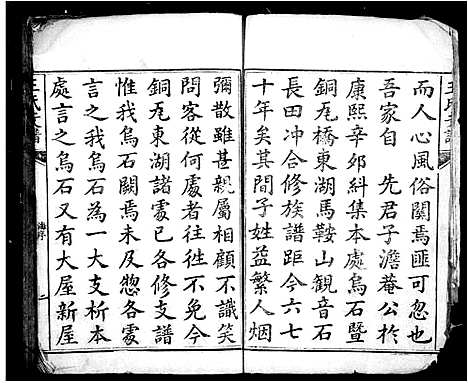 而人心風俗關焉匪可忽也
吾家自　先君子澹菴公於
康熙辛夘糾集本處烏石暨
銅瓦橋東湖馬鞍山觀音石
長田冲合修族譜距今六七
十年矣其間子姓益繁人烟
彌散雖甚親屬相顧不識笑
問客從何處者往徃不免今
銅瓦東湖諸䖏已各修支譜
惟我烏石闕焉未及㤗各處
言之我烏石為一大支析本
處言之烏石又有大屋新屋
王氏
二